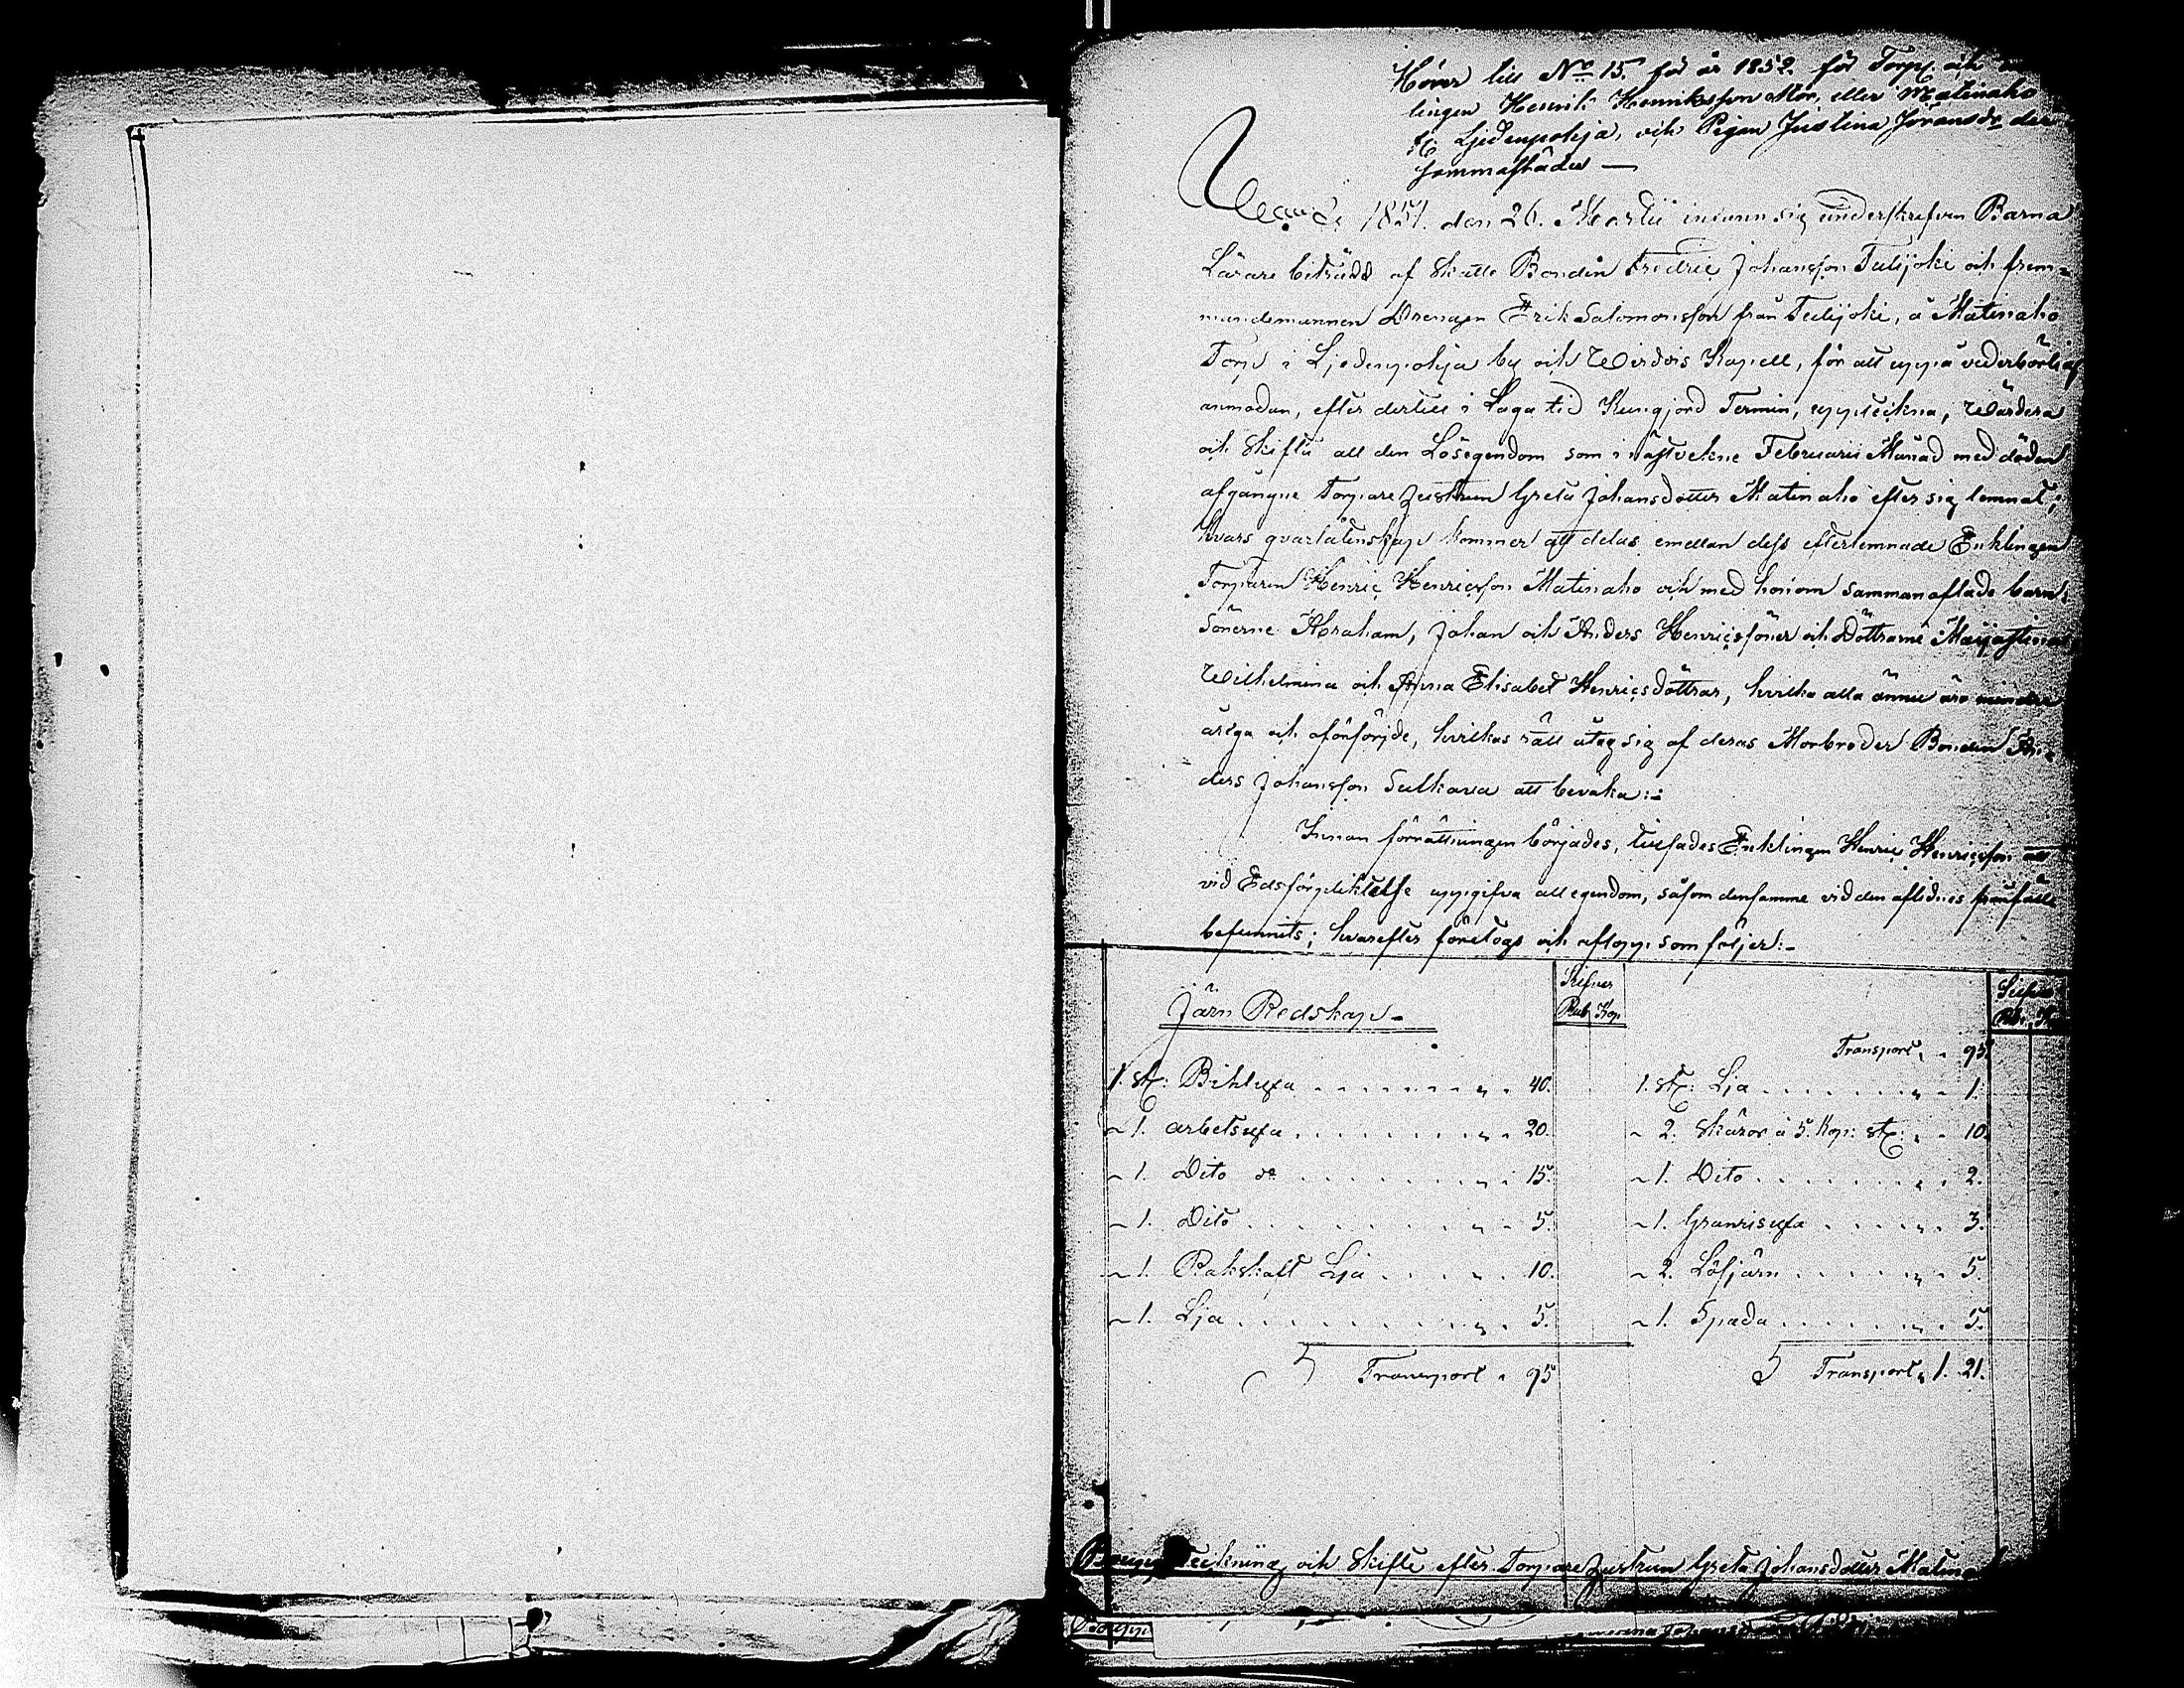 Hörer till No 15. för år 1852. för Torp. och
lingen Henrik Henriksson Mor, eller Matinaho
fr. Ljedenpohja, och Pigan Justina Jöransdr der
sammastädes —
År 1851. den 26. Martii infann sig underskrefven Barna
Lärare biträdd af Skatte Bonden Fredric Johansson Tulijoki och frem-
mandemannen Drengen Erik Salomonsson från Tulijoki, å Matinaho
Torp i Ljedenpohja by och Wirdois Kapell, för att uppå vederbörlig
anmodan, efter dertill i Laga tid Kungjord Termin, uppteckna, Wärdera
och skifta all den Lösegendom som i nästvekne Februarii Månad med döden
afgangne Torpare hustrun Greta Johansdotter Matinaho efter sig lemnat;
hvars qvarlåtenskap kommer att delas emellan dess efterlemnade Enklingen
Torparen Henric Henricsson Matinaho och med honom sammanaflade barn:
Sönerne Abraham, Johan och Anders Henricssöner och Döttrarne Majastina
Wilhelmina och Anna Elisabet Henricsdöttrar, hvilka alla ännu äro minder
åriga och oförsörjde, hvilkas rätt åtog sig af deras Morbroder Bonden An-
ders Johansson Sulkava att bevaka:-
Innan förrättningen börjades, tillsades Enklingen Henric Henricsson att
vid Edsförpliktelse uppgifva all egendom, såsom densamme vid den aflidnes frånfälle
befunnits; hvarefter företogs och aflopp som följer:-
Järn Redskap -
Silfver
Rub Kop
1. st: Bihluxa . . . . . . . „ . 40.
~ 1. arbetsuxa . . . . . . . „ . 20.
~ 1. Dito do . . . . . . . „ . 15.
~ 1. Dito . . . . . . . „ . 5.
~ 1. Rakskaft Lja . . . . „ . 10.
~ 1. Lja . . . . . . . „ . 5.
Transport „ 95
Silfver
Rub. K
Transport „ . 95.
1. st: Lja . . . . . . . „ . 1.
~ 2. Skäror à 5. Kop: st: „ . 10.
~ 1. Dito . . . . . . . „ . 2.
~ 1. Granrisuxa . . . . „ . 3.
~ 2. Löfjärn . . . . . „ . 5.
~ 1. Spada . . . . . . „ . 5.
Transport „ 1. 21.
teckning och Skifte efter Torpare hustrun Greta Johansdotter Matina